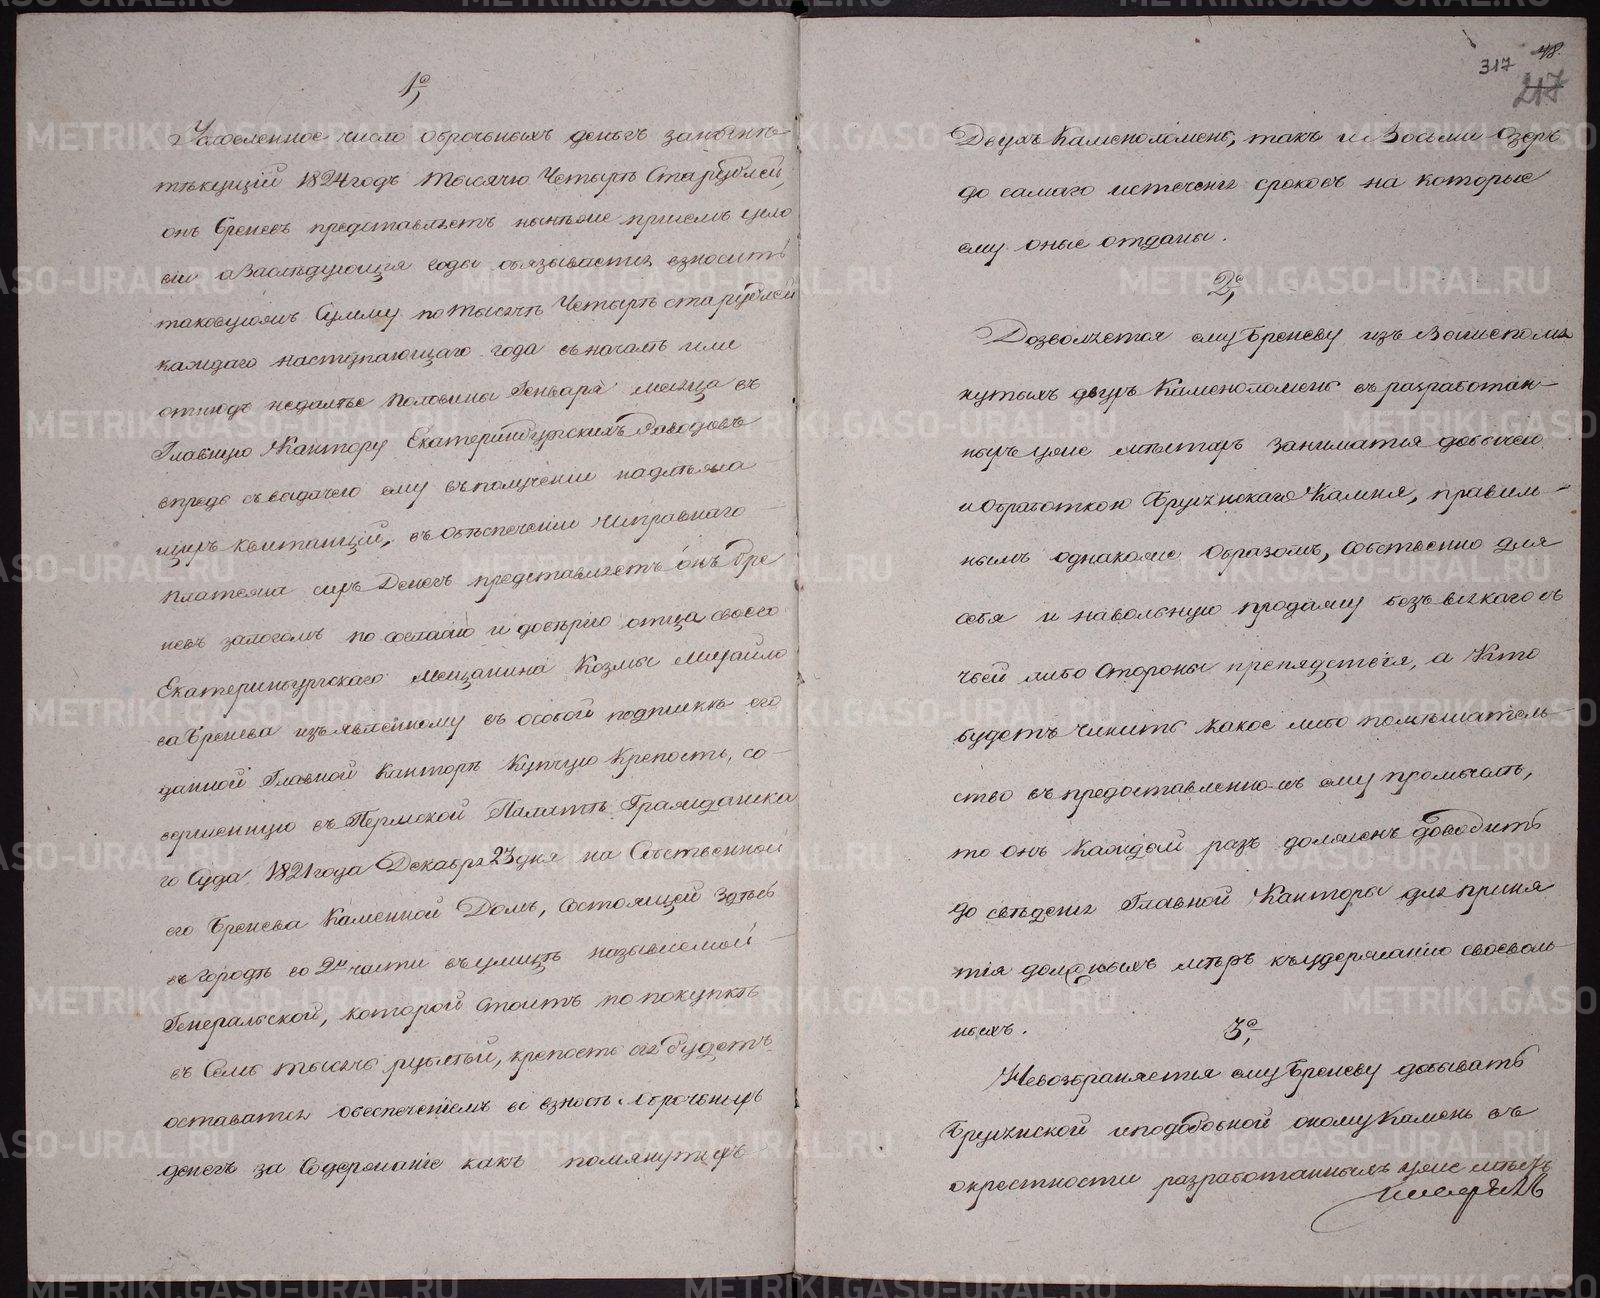 1е
Условленное число оброчныхъ денегъ занынѣ
тѣкущiй 1824 годъ тысячю четыре ста рублей,
онъ Бреневъ представляетъ нынѣже приемъ цело
си а Заслѣдующiя годы обязывается взносить
таковуюжъ Сумму по тысячѣ четыре ста рублей
каждаго наступающаго года въ началѣ или
отнюдъ недалѣе половины Генваря месяца въ
Главную Кантору Екатеринбургскихъ Заводовъ
впредь съ выдачею ему въ полученiи надлѣжа
щихъ квитанцiй, въ обѣспеченiи исправнаго
платежа сихъ Денегъ представляетъ онъ Бре
невъ залогомъ по согласiю и довѣрiю отца своего
Екатеринбургскаго мещанина Козмы Михайло
ва Бренева изъявленному въ особой подпискѣ его
данной Главной Канторѣ Купчую Крепость, со-
вершенную въ Пермской Палатѣ Гражданска
го Суда 1821 года Декабря 23 дня на Собственной
его Бренева Каменной Домъ, состоящей здѣсь
въ городѣ во 2й части въ улицѣ называемой
Генеральской, которой стоитъ по покупкѣ
въ Семь тысячь рублѣй, крепость сiя будетъ
оставатся обеспеченiемъ въ взносѣ оброчныхъ
денегъ за Содержанiе какъ помянутыхъ
48.
317
217
Двухъ Каменоломень, такъ и Восьми Озеръ
до самаго истеченiя сроковъ на которые
ему оные отданы.
2е
Дозволяется ему Бреневу изъ Вышепомя
нутыхъ двухъ Каменоломень въ разработан-
ныхъ уже мѣстахъ заниматся добычею
и Обработкою Брусянскаго Камня, правиль-
нымъ однакоже Образомъ, Собственно для
себя и навольную продажу безъ всякаго съ
чьей либо Стороны препядствiя, а Кто
будетъ чинить какое либо помѣшатель-
ство въ предоставленномъ ему промыслѣ,
то онъ каждый разъ долженъ доводить
до свѣденiя Главной Канторы для приня
тiя должныхъ мѣръ къ удержанiю своеволь-
ныхъ.
3е
Невозбраняется ему Бреневу добывать
Брусянской и подобной оному Камень въ
окрестности разработанныхъ уже мѣстъ